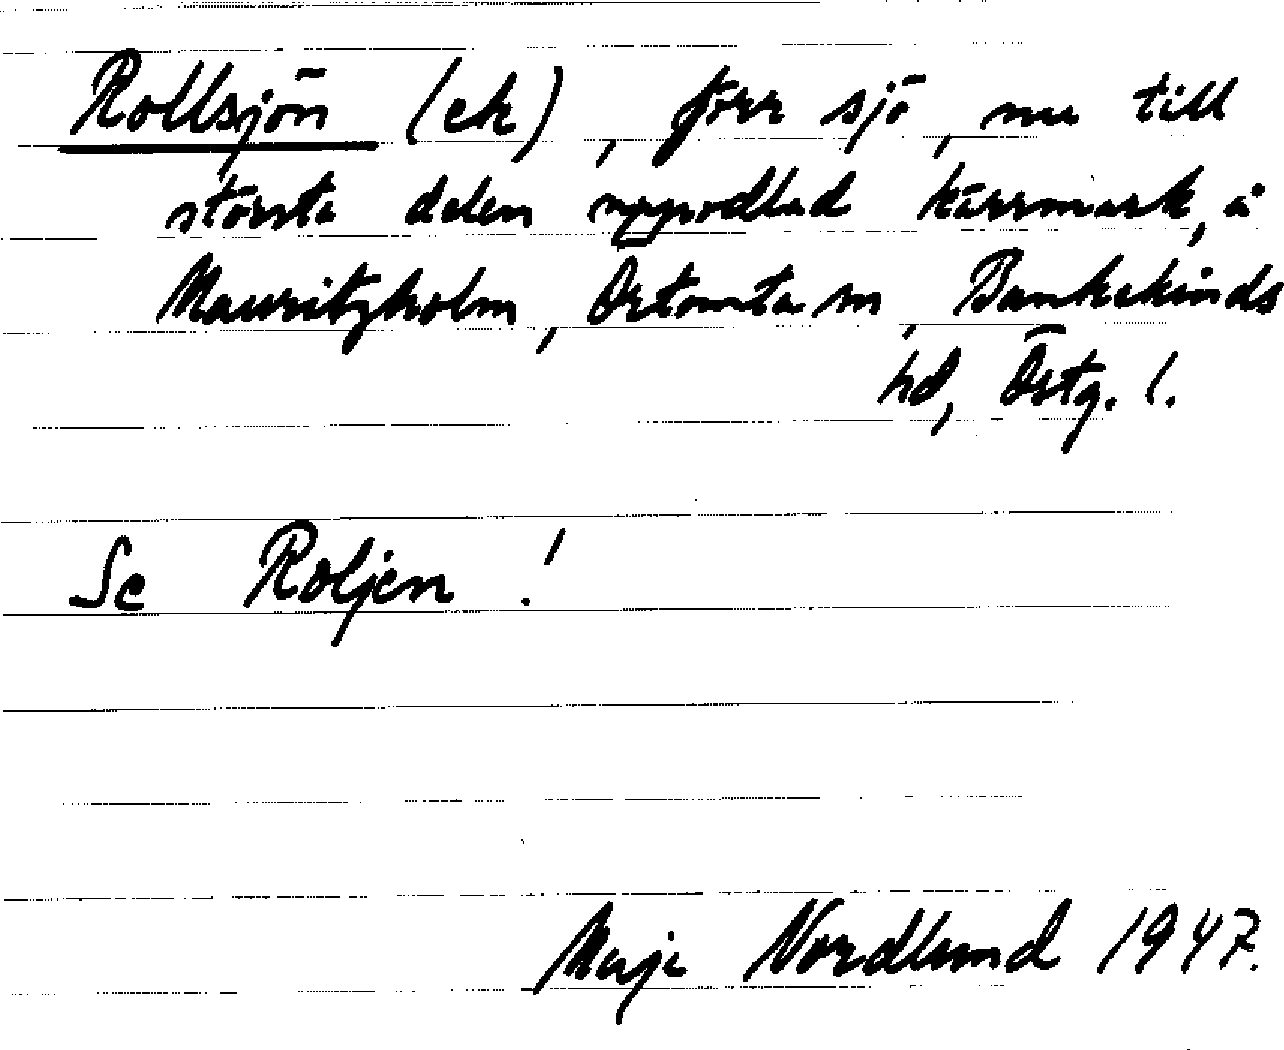 Rollsjön (ek), förr sjö, nu till
största delen uppodlad kärrmark, å
Mauritzholm, Örtomta sn, Bankekinds
hd, Östg. l.
Se Roljen!
Maja Nordlund 1947.